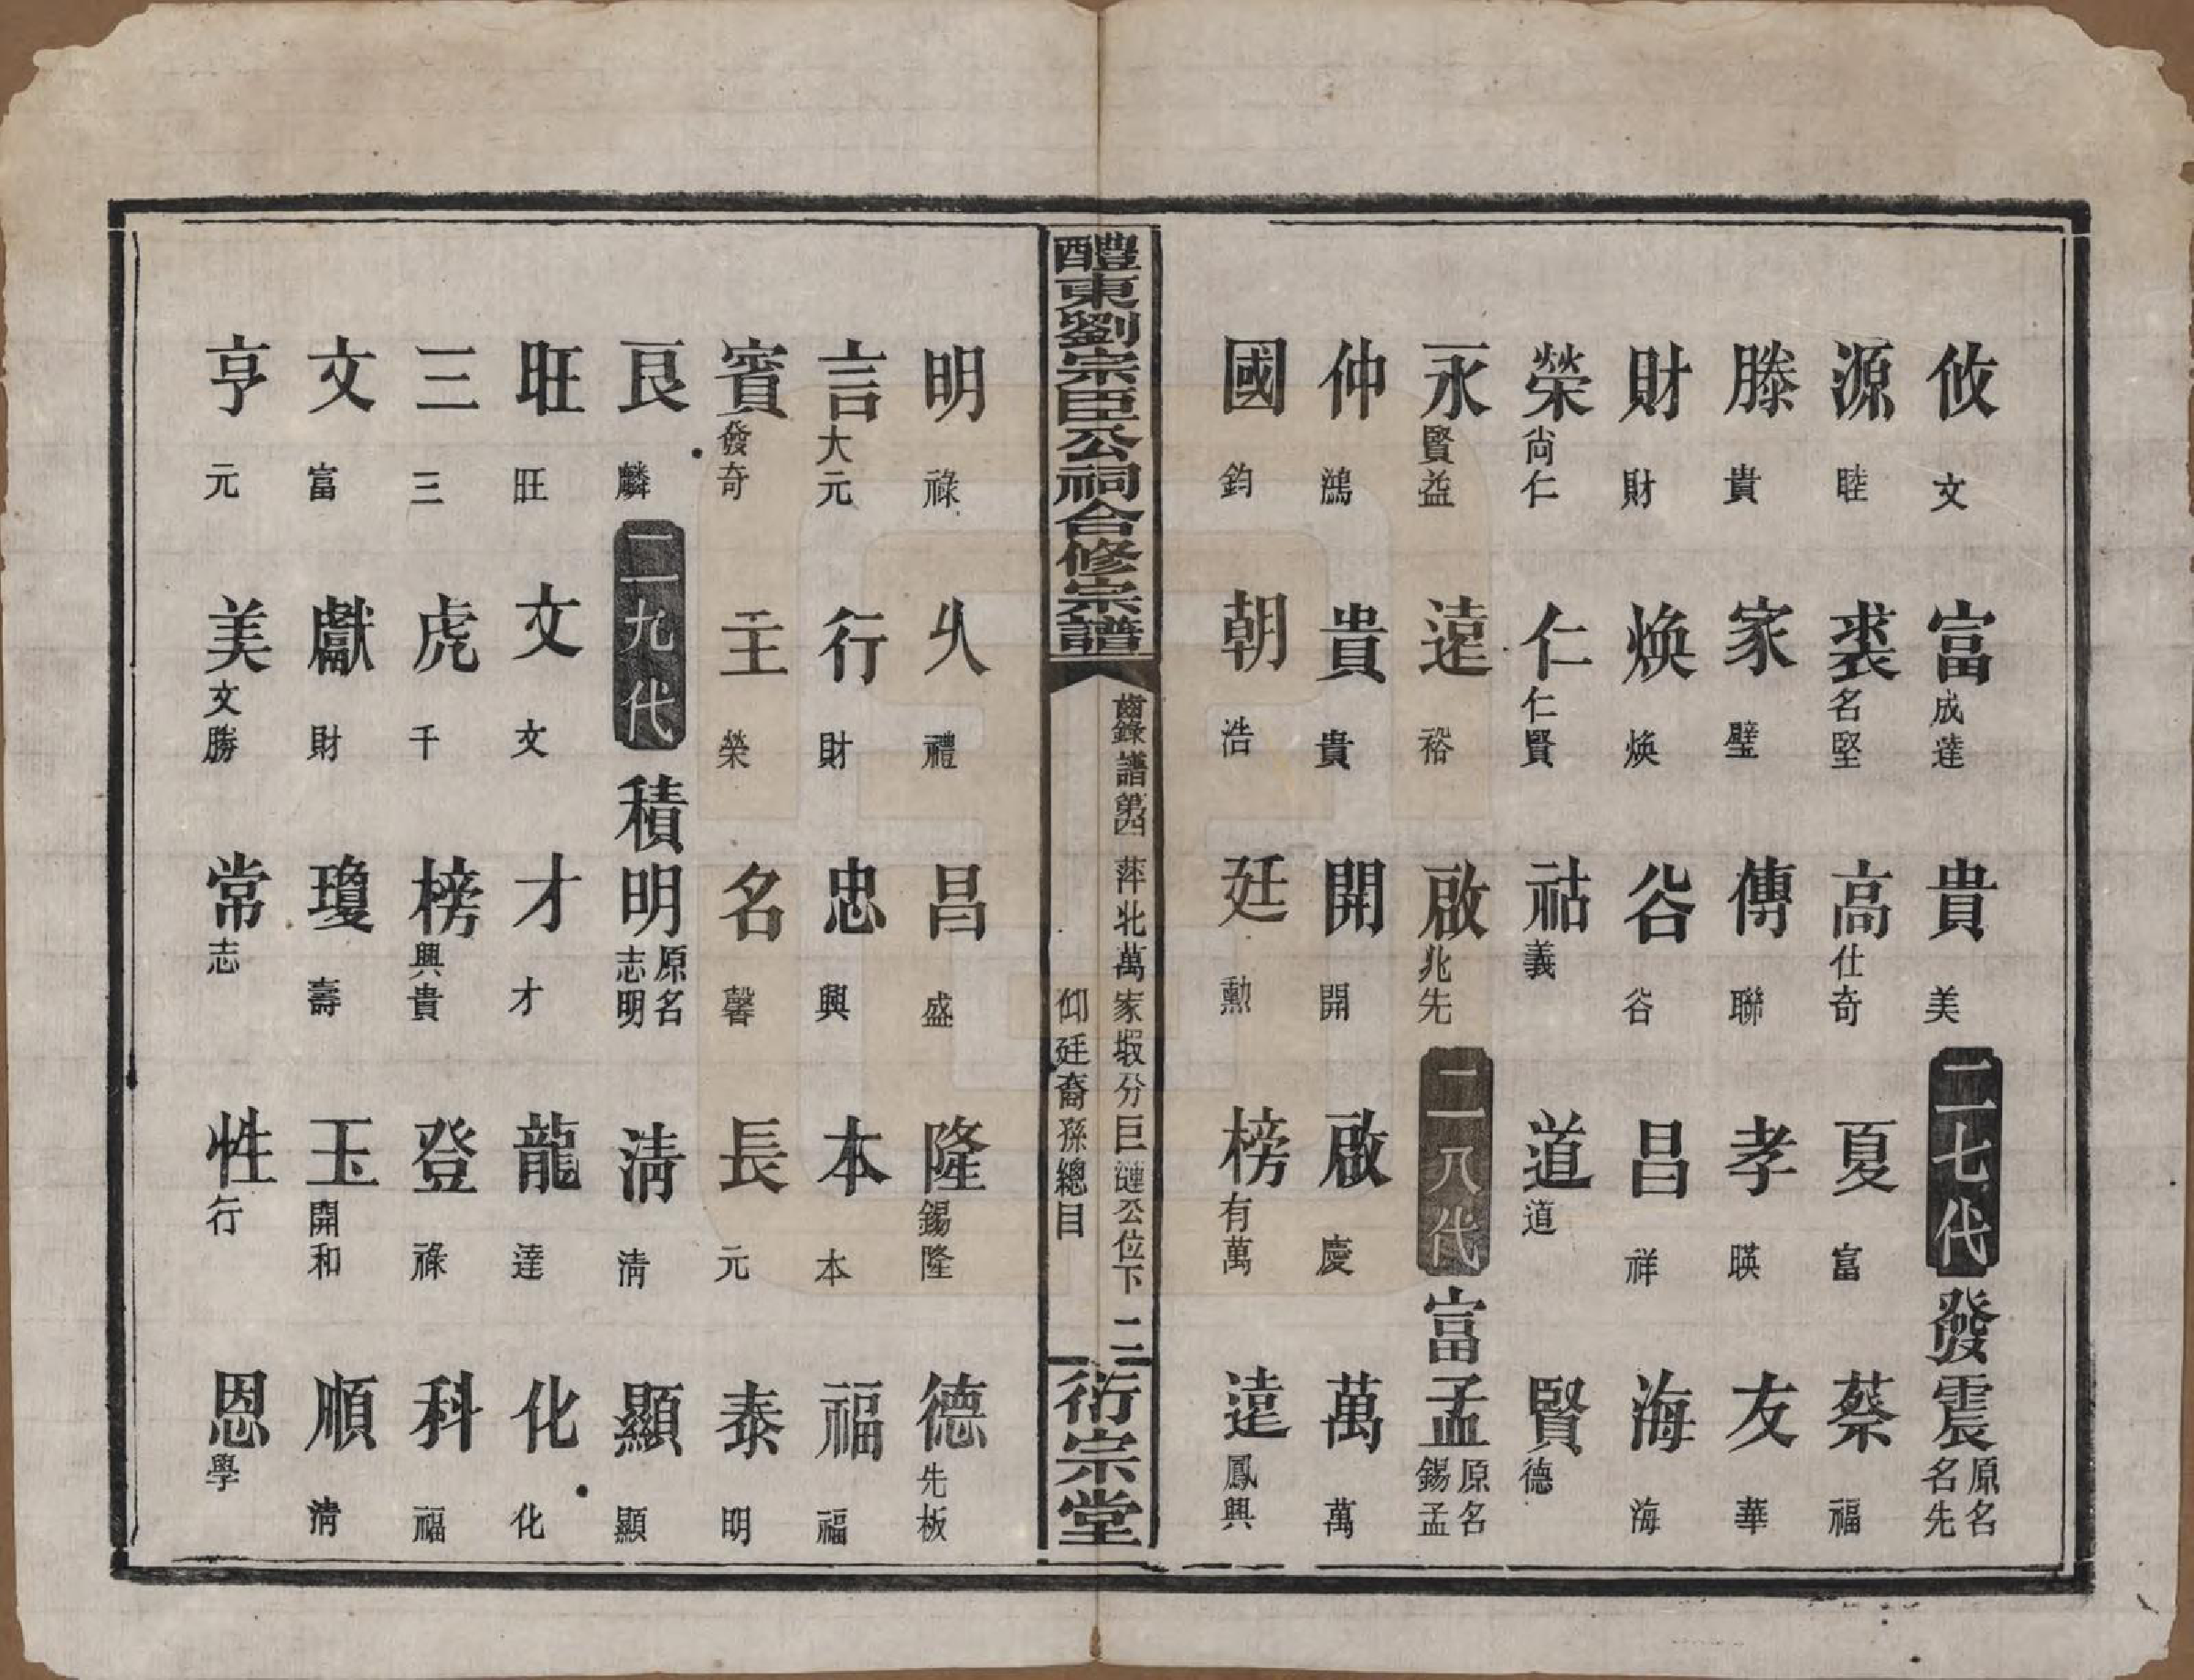 攸文 富成達 貴美 二七代 發震原名名先
源睦 裘名堅 高仕奇 夏富 蔡福
滕貴 家璧 傳聯 孝暎 友華
財財 焕焕 谷谷 昌祥 海海
榮尚仁 仁仁賢 祜義 道道 賢德
永賢益 遠裕 啟兆先 二八代 富孟原名錫孟
仲鴻 貴貴 開開 啟慶 萬萬
國鈞 朝浩 廷勳 榜有萬 遠鳳興
醴東劉宗臣公祠合修宗譜
齒錄 譜第四 萍北萬家塅分巨漣公位下 二
仰廷裔孫總目
衍宗堂
明祿 久禮 昌盛 隆錫隆 德先板
言大元 行財 忠興 本本 福福
賓發奇 主榮 名馨 長元 泰明
良麟 二九代 積明原名志明 清清 顯顯
旺旺 文文 才才 龍達 化化
三三 虎千 榜興貴 登祿 科福
文富 獻財 瓊壽 玉開和 順清
亨元 美文勝 常志 性行 恩學